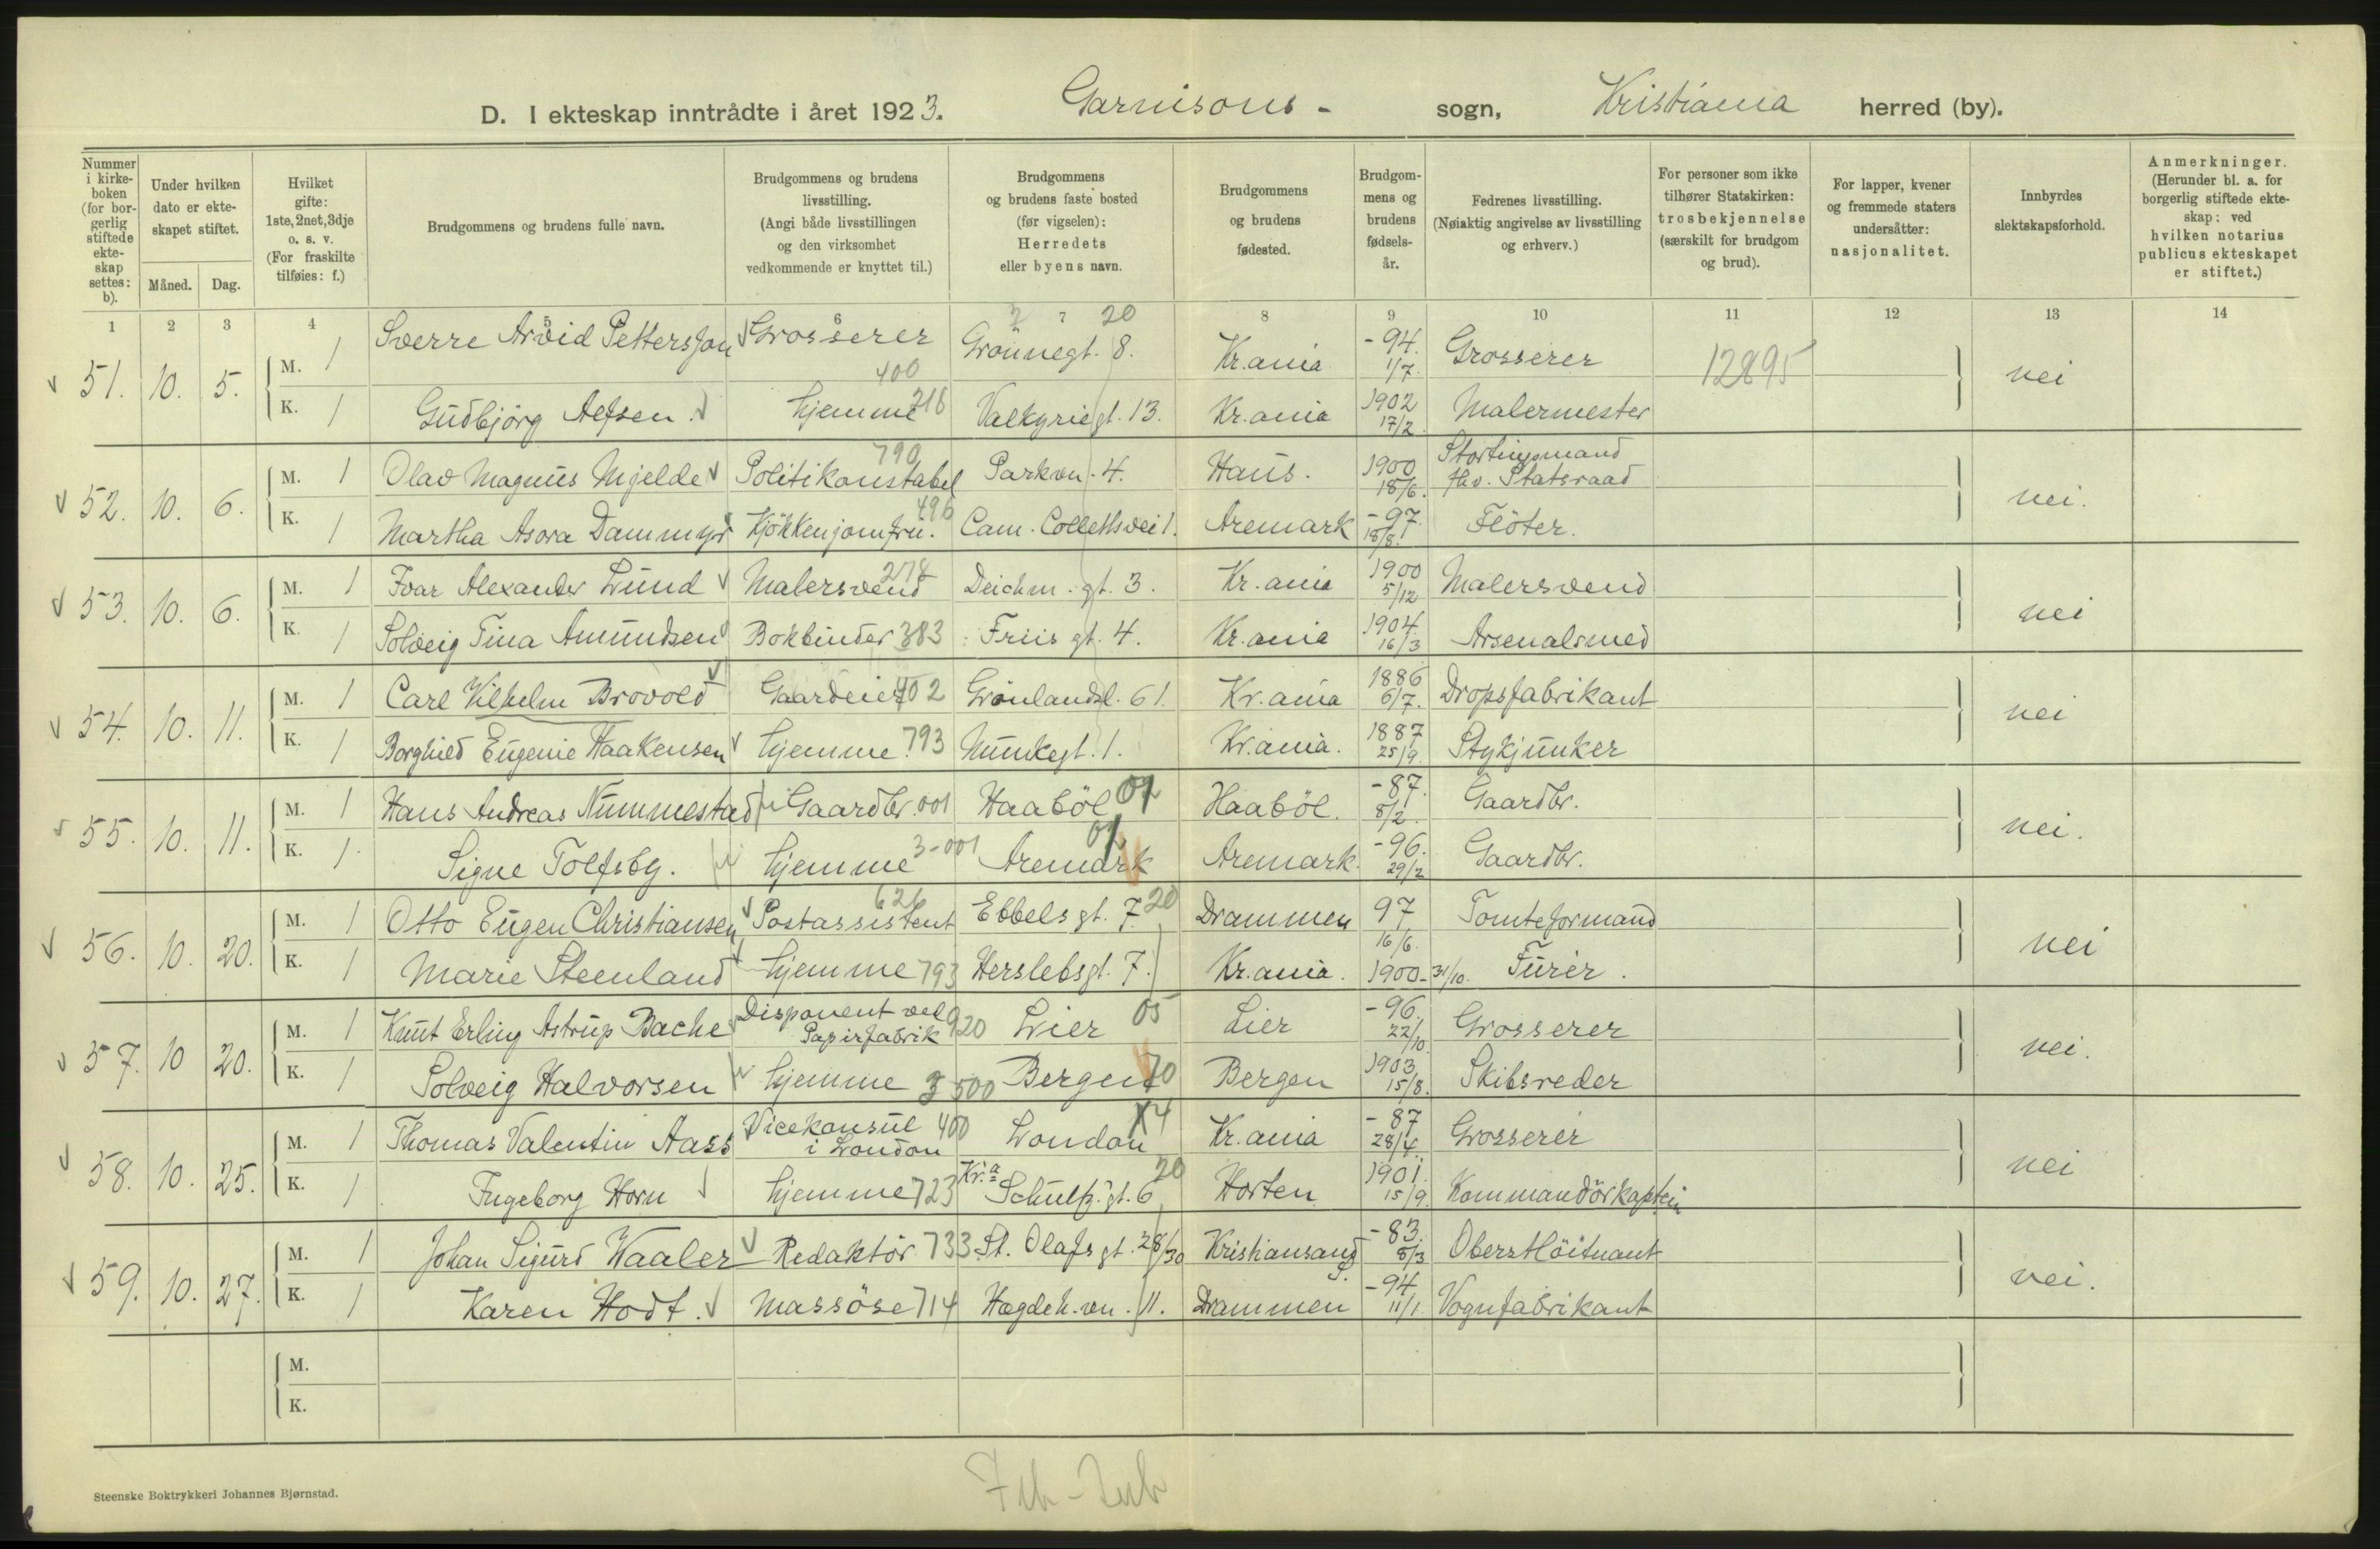 D. I ekteskap inntrådte i året 1923. Garnisons- sogn, Kristiania herred (by).
Nummer i kirkeboken (for borgerlig stiftede ekteskap settes: b).
Under hvilken dato er ekteskapet stiftet.
Måned. Dag.
Hvilket gifte: 1ste, 2net, 3dje o. s. v. (For fraskilte tilføies: f.)
Brudgommens og brudens fulle navn.
Brudgommens og brudens livsstilling. (Angi både livsstillingen og den virksomhet vedkommende er knyttet til.)
Brudgommens og brudens faste bosted (før vigselen): Herredets eller byens navn.
Brudgommens og brudens fødested.
Brudgommens og brudens fødselsår.
Fedrenes livsstilling. (Nøiaktig angivelse av livsstilling og erhverv.)
For personer som ikke tilhører Statskirken: trosbekjennelse (særskilt for brudgom og brud).
For lapper, kvener og fremmede staters undersåtter: nasjonalitet.
Innbyrdes slektskapsforhold.
Anmerkninger. (Herunder bl. a. for borgerlig stiftede ekteskap: ved hvilken notarius publicus ekteskapet er stiftet.)
1 2 3 4 5 6 7 8 9 10 11 12 13 14
51. 10. 5. M. 1 Sverre Arvid Pettersson Grosserer 400 Grönnegt. 8. 20 Kr.ania -94. 1/7. Grosserer 12895 nei
K. 1 Gudbjörg Alfsen. hjemme 216 Valkyriegt. 13. Kr.ania 1902 17/2 Malermester
52. 10. 6. M. 1 Olav Magnus Mjelde Politikonstabel 790 Parkvn. 4. Haus. 1900 18/6. Stortingsmand fhv. Statsraad nei.
K. 1 Martha Asora Dammyr Kjökkenjomfru. 496 Cam. Colletts vei 1. Aremark -97. 18/8. Flöter.
53. 10. 6. M. 1 Ivar Alexander Lund Malersvend 218 Deichm. gt. 3. Kr.ania 1900 5/12 Malersvend nei
K. 1 Solveig Tina Amundsen Bokbinder 383 Friis gt. 4. Kr.ania 1904 16/3 Arsenalsmed
54. 10. 11. M. 1 Carl Vilhelm Brovold Gaardeier 402 Grönlandsl. 61. Kr.ania 1886 6/7. Dropsfabrikant nei
K. 1 Borghild Eugenie Haakensen hjemme 793 Munkegt. 1. Kr.ania. 1887 25/9. Stykjunker
55. 10. 11. M. 1 Hans Andreas Nummestad Gaardbr. 001 Haaböl 01 Haaböl. -87. 8/2. Gaardbr. nei.
K. 1. Signe Tolfsby. hjemme 3-001 Aremark 01 Aremark. -96. 29/2 Gaardbr.
56. 10. 20. M. 1 Otto Eugen Christiansen Postassistent 626 Ebbels gt. 7. 20 Drammen 97 16/6. Tomteformand nei
K. 1 Marie Steenland hjemme 793 Herslebsgt. 7. Kr.ania. 1900-31/10. Furér.
57. 10 20. M. 1 Knut Erling Astrup Bache Disponent ved Papirfabrik 920 Lier 05 Lier -96. 22/10. Grosserer nei.
K. 1 Solveig Halvorsen hjemme 3 500 Bergen 70 Bergen 1903 15/8. Skibsreder
58. 10. 25. M. 1 Thomas Valentin Aass Vicekonsul i London 400 London X4 Kr.ania -87 28/4. Grosserer nei
K. 1 Ingeborg Horn hjemme 723 Kr.a Schultz' gt. 6 20 Horten 1901. 15/9. Kommandörkaptein
59. 10. 27. M. 1 Johan Sigurd Waaler Redaktör 733 St. Olafs gt. 28/30 Kristiansand S. -83. 8/3 Oberstlöitnant nei.
K. 1 Karen Hodt. Massöse 714 Hegdeh. vn. 11. Drammen -94 11/1 Vognfabrikant
M.
K.
Steenske Boktrykkeri Johannes Bjørnstad.